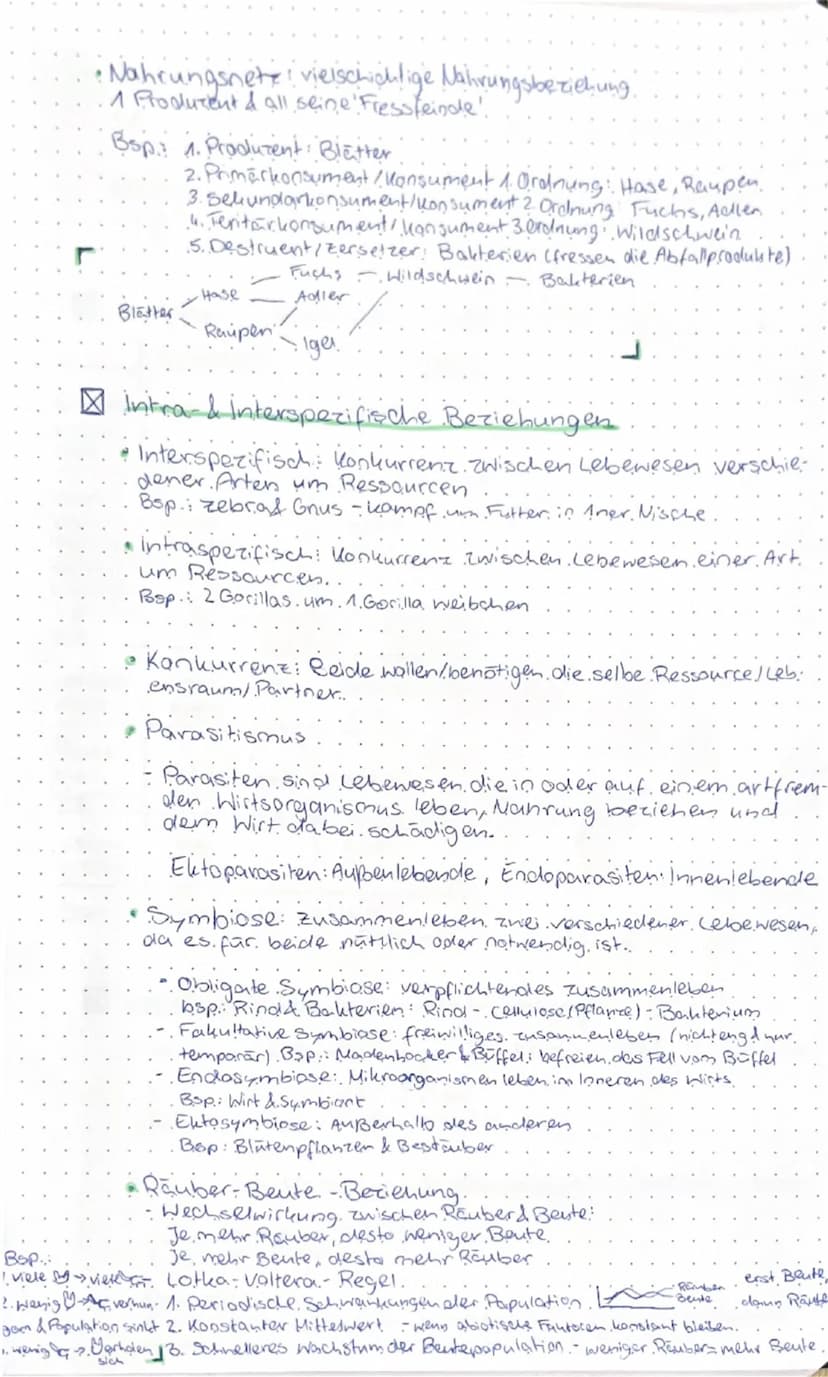 • Nahrungsnetz: vielschichtige Nahrungsbeziehung
1 Produzent & all seine 'Fressfeinde'
Bsp.: 1. Produzent: Blätter
2. Primärkonsument/Konsument 1. Ordnung: Hase, Raupen
3. Sekundärkonsument/Konsument 2. Ordnung: Fuchs, Adler
4. Tertiärkonsument/Konsument 3. Ordnung: Wildschwein
5. Destruent/Zersetzer: Bakterien (fressen die Abfallprodukte)
Fuchs — Wildschwein — Bakterien
Hase — Adler
Blätter
Raupen
Igel
Intra- & Interspezifische Beziehungen
• Interspezifisch: Konkurrenz zwischen Lebewesen verschie-
dener Arten um Ressourcen
Bsp.: Zebra & Gnus - Kampf um Futter in 1ner Nische
• Intraspezifisch: Konkurrenz zwischen Lebewesen einer Art
um Ressourcen.
Bsp.: 2 Gorillas um 1 Gorilla weibchen
• Konkurrenz: Beide wollen/benötigen die selbe Ressource/Leb-
ensraum/Partner
• Parasitismus
- Parasiten sind Lebewesen die in oder auf einem artfrem-
den Wirtsorganismus leben, Nahrung beziehen und
dem Wirt dabei schädigen.
Ektoparasiten: Außenlebende, Endoparasiten: Innenlebende
• Symbiose: Zusammenleben zwei verschiedener Lebewesen,
da es für beide nützlich oder notwendig ist.
- Obligate Symbiose: verpflichtendes zusammenleben
bsp.: Rind & Bakterien: Rind - Cellulose (Pflanze) - Bakterium
- Fakultative Symbiose: freiwilliges zusammenleben (nicht eng & nur
temporär) Bsp.: Madenhacker & Büffel: befreien das Fell vom Büffel
- Endosymbiose: Mikroorganismen leben im Inneren des Wirts
Bsp.: Wirt & Symbiont
- Ektosymbiose: Außerhalb des anderen
Bsp: Blütenpflanzen & Bestäuber
• Räuber-Beute-Beziehung
- Wechselwirkung zwischen Räuber & Beute:
Je mehr Räuber, desto weniger Beute
Je mehr Beute, desto mehr Räuber
Bsp.:
1. viele → viele Lotka-Voltera-Regel
2. wenig → verhun- 1. Periodische Schwankungen der Population Räuber Beute erst Beute, dann Räube
gern & Population sinkt 2. Konstanter Mittelwert - wenn abiotische Faktoren konstant bleiben.
wenig → erholen sich 3. Schnelleres Wachstum der Beutepopulation - weniger Räuber = mehr Beute